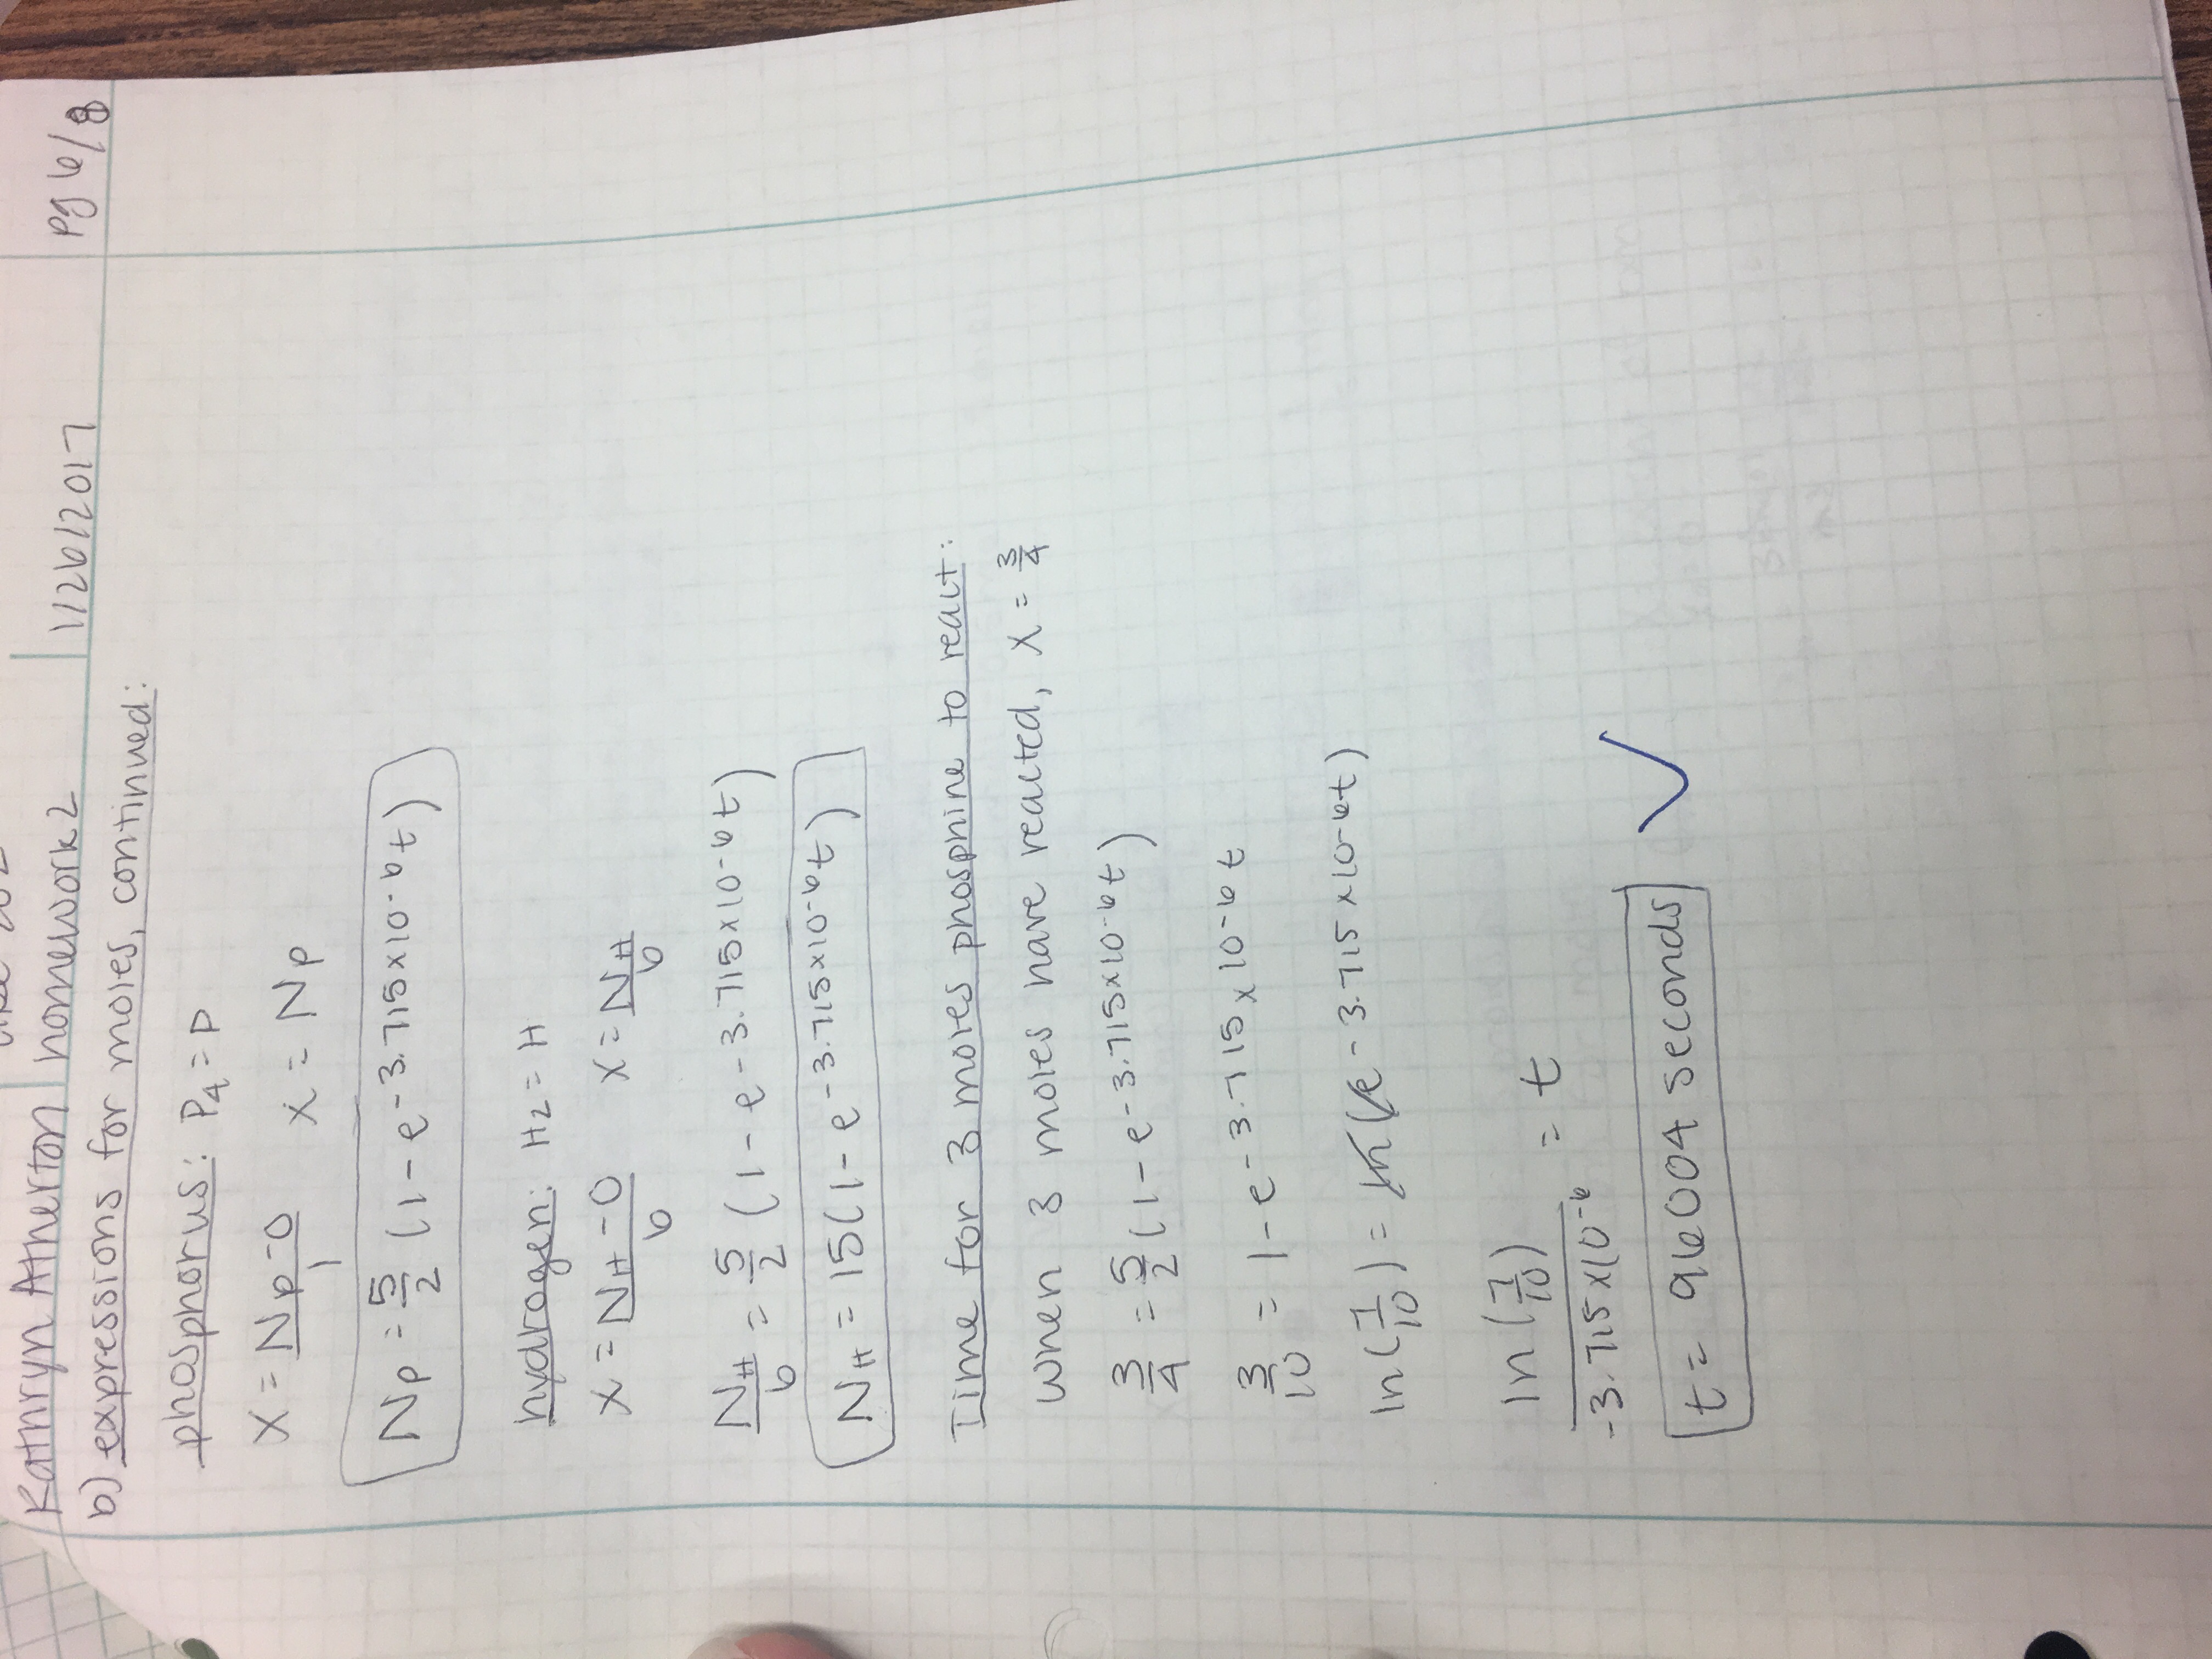 Kathryn Atherton homework 2 1/26/2017 pg 6/8
b) expressions for moles, continued:
phosphorus: P₄ = P
X = (N_P - 0)/1 x = N_P
N_P = 5/2 (1 - e^(-3.715×10^-6 t))
hydrogen: H₂ = H
X = (N_H - 0)/6 X = N_H/6
N_H/6 = 5/2 (1 - e^(-3.715×10^-6 t))
N_H = 15(1 - e^(-3.715×10^-6 t))
Time for 3 moles phosphine to react:
When 3 moles have reacted, X = 3/4
3/4 = 5/2 (1 - e^(-3.715×10^-6 t))
3/10 = 1 - e^(-3.715×10^-6 t)
ln(7/10) = ln(e^(-3.715×10^-6 t))
ln(7/10)/(-3.715×10^-6) = t
t = 96004 seconds